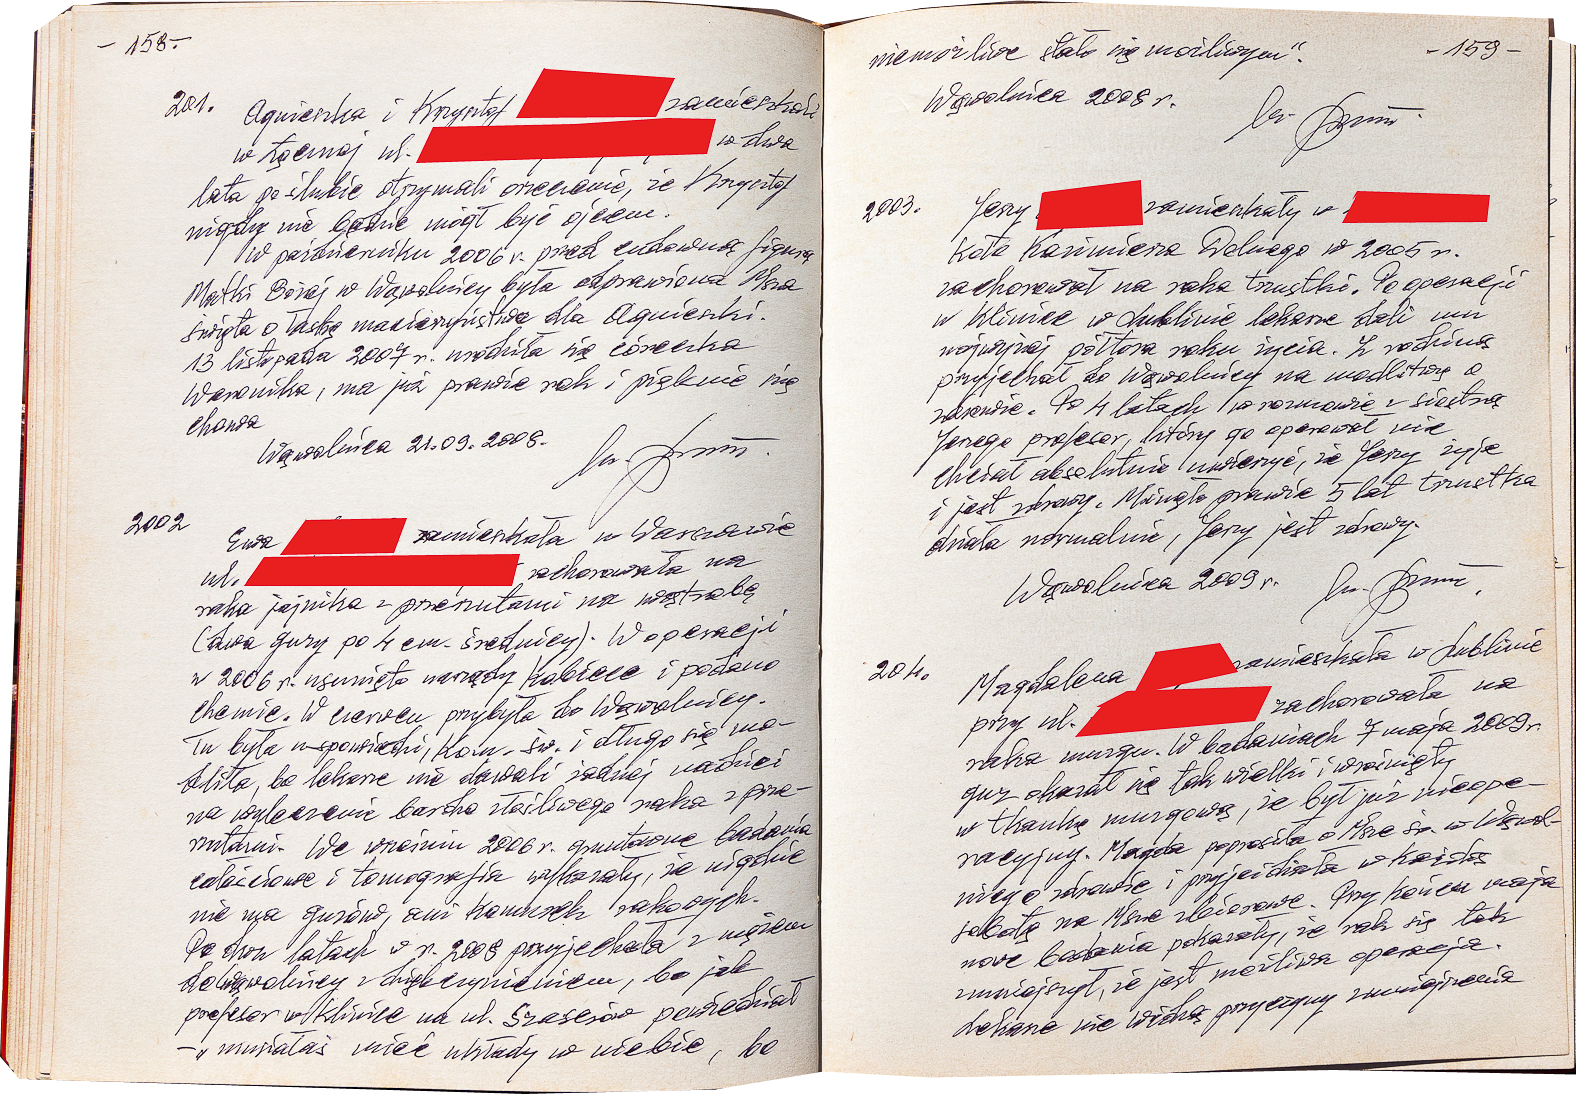 - 158 -
201. Agnieszka i Krzysztof zamieszkali
w Łęcznej ul. w dwa
lata po ślubie otrzymali orzeczenie, że Krzysztof
nigdy nie będzie mógł być ojcem.
W październiku 2006 r. przed cudowną figurą
Matki Bożej w Wąwolnicy była odprawiona Msza
święta o łaskę macierzyństwa dla Agnieszki.
13 listopada 2007 r. urodziła się córeczka
Weronika, ma już prawie rok i pięknie się
chowa
Wąwolnica 21.09.2008.
2002 Ewa zamieszkała w Warszawie
ul. zachorowała na
raka jajnika z przerzutami na wątrobę
(dwa guzy po 4 cm. średnicy). W operacji
w 2006 r. usunięto narządy kobiece i podano
chemię. W czerwcu przybyła do Wąwolnicy.
Tu była u spowiedzi, Kom. św. i długo się mo-
dliła, bo lekarze nie dawali żadnej nadziei
na wyleczenie bardzo złośliwego raka z prze-
rzutami. We wrześniu 2006 r. gruntowne badania
całościowe i tomografia wykazały, że nigdzie
nie ma guzów, ani komórek rakowych.
Po dwu latach w r. 2008 przyjechała z mężem
do Wąwolnicy z dziękczynieniem, bo jak
profesor w Klinice na ul. Szaserów powiedział
- „musiałaś mieć układy w niebie, bo
- 159 -
niemożliwe stało się możliwym".
Wąwolnica 2008 r.
2003. Jerzy zamieszkały w
koło Kazimierza Dolnego w 2005 r.
zachorował na raka trzustki. Po operacji
w klinice w Lublinie lekarze dali mu
najwyżej półtora roku życia. Z rodziną
przyjechał do Wąwolnicy na modlitwę o
zdrowie. Po 4 latach w rozmowie z siostrą
Jerzego profesor, który go operował nie
chciał absolutnie uwierzyć, że Jerzy żyje
i jest zdrowy. Minęło prawie 5 lat trzustka
działa normalnie, Jerzy jest zdrowy.
Wąwolnica 2009 r.
204. Magdalena zamieszkała w Lublinie
przy ul. zachorowała na
raka mózgu. W badaniach 7 maja 2009 r.
guz okazał się tak wielki i wrośnięty
w tkankę mózgową, że był już nieope-
racyjny. Magda poprosiła o Mszę św. w Wąwol-
nicy o zdrowie i przyjeżdżała w każdą
sobotę na Mszę zbiorową. Przy końcu maja
nowe badania pokazały, że rak się tak
zmniejszył, że jest możliwa operacja.
Lekarze nie widzą przyczyny zmniejszenia